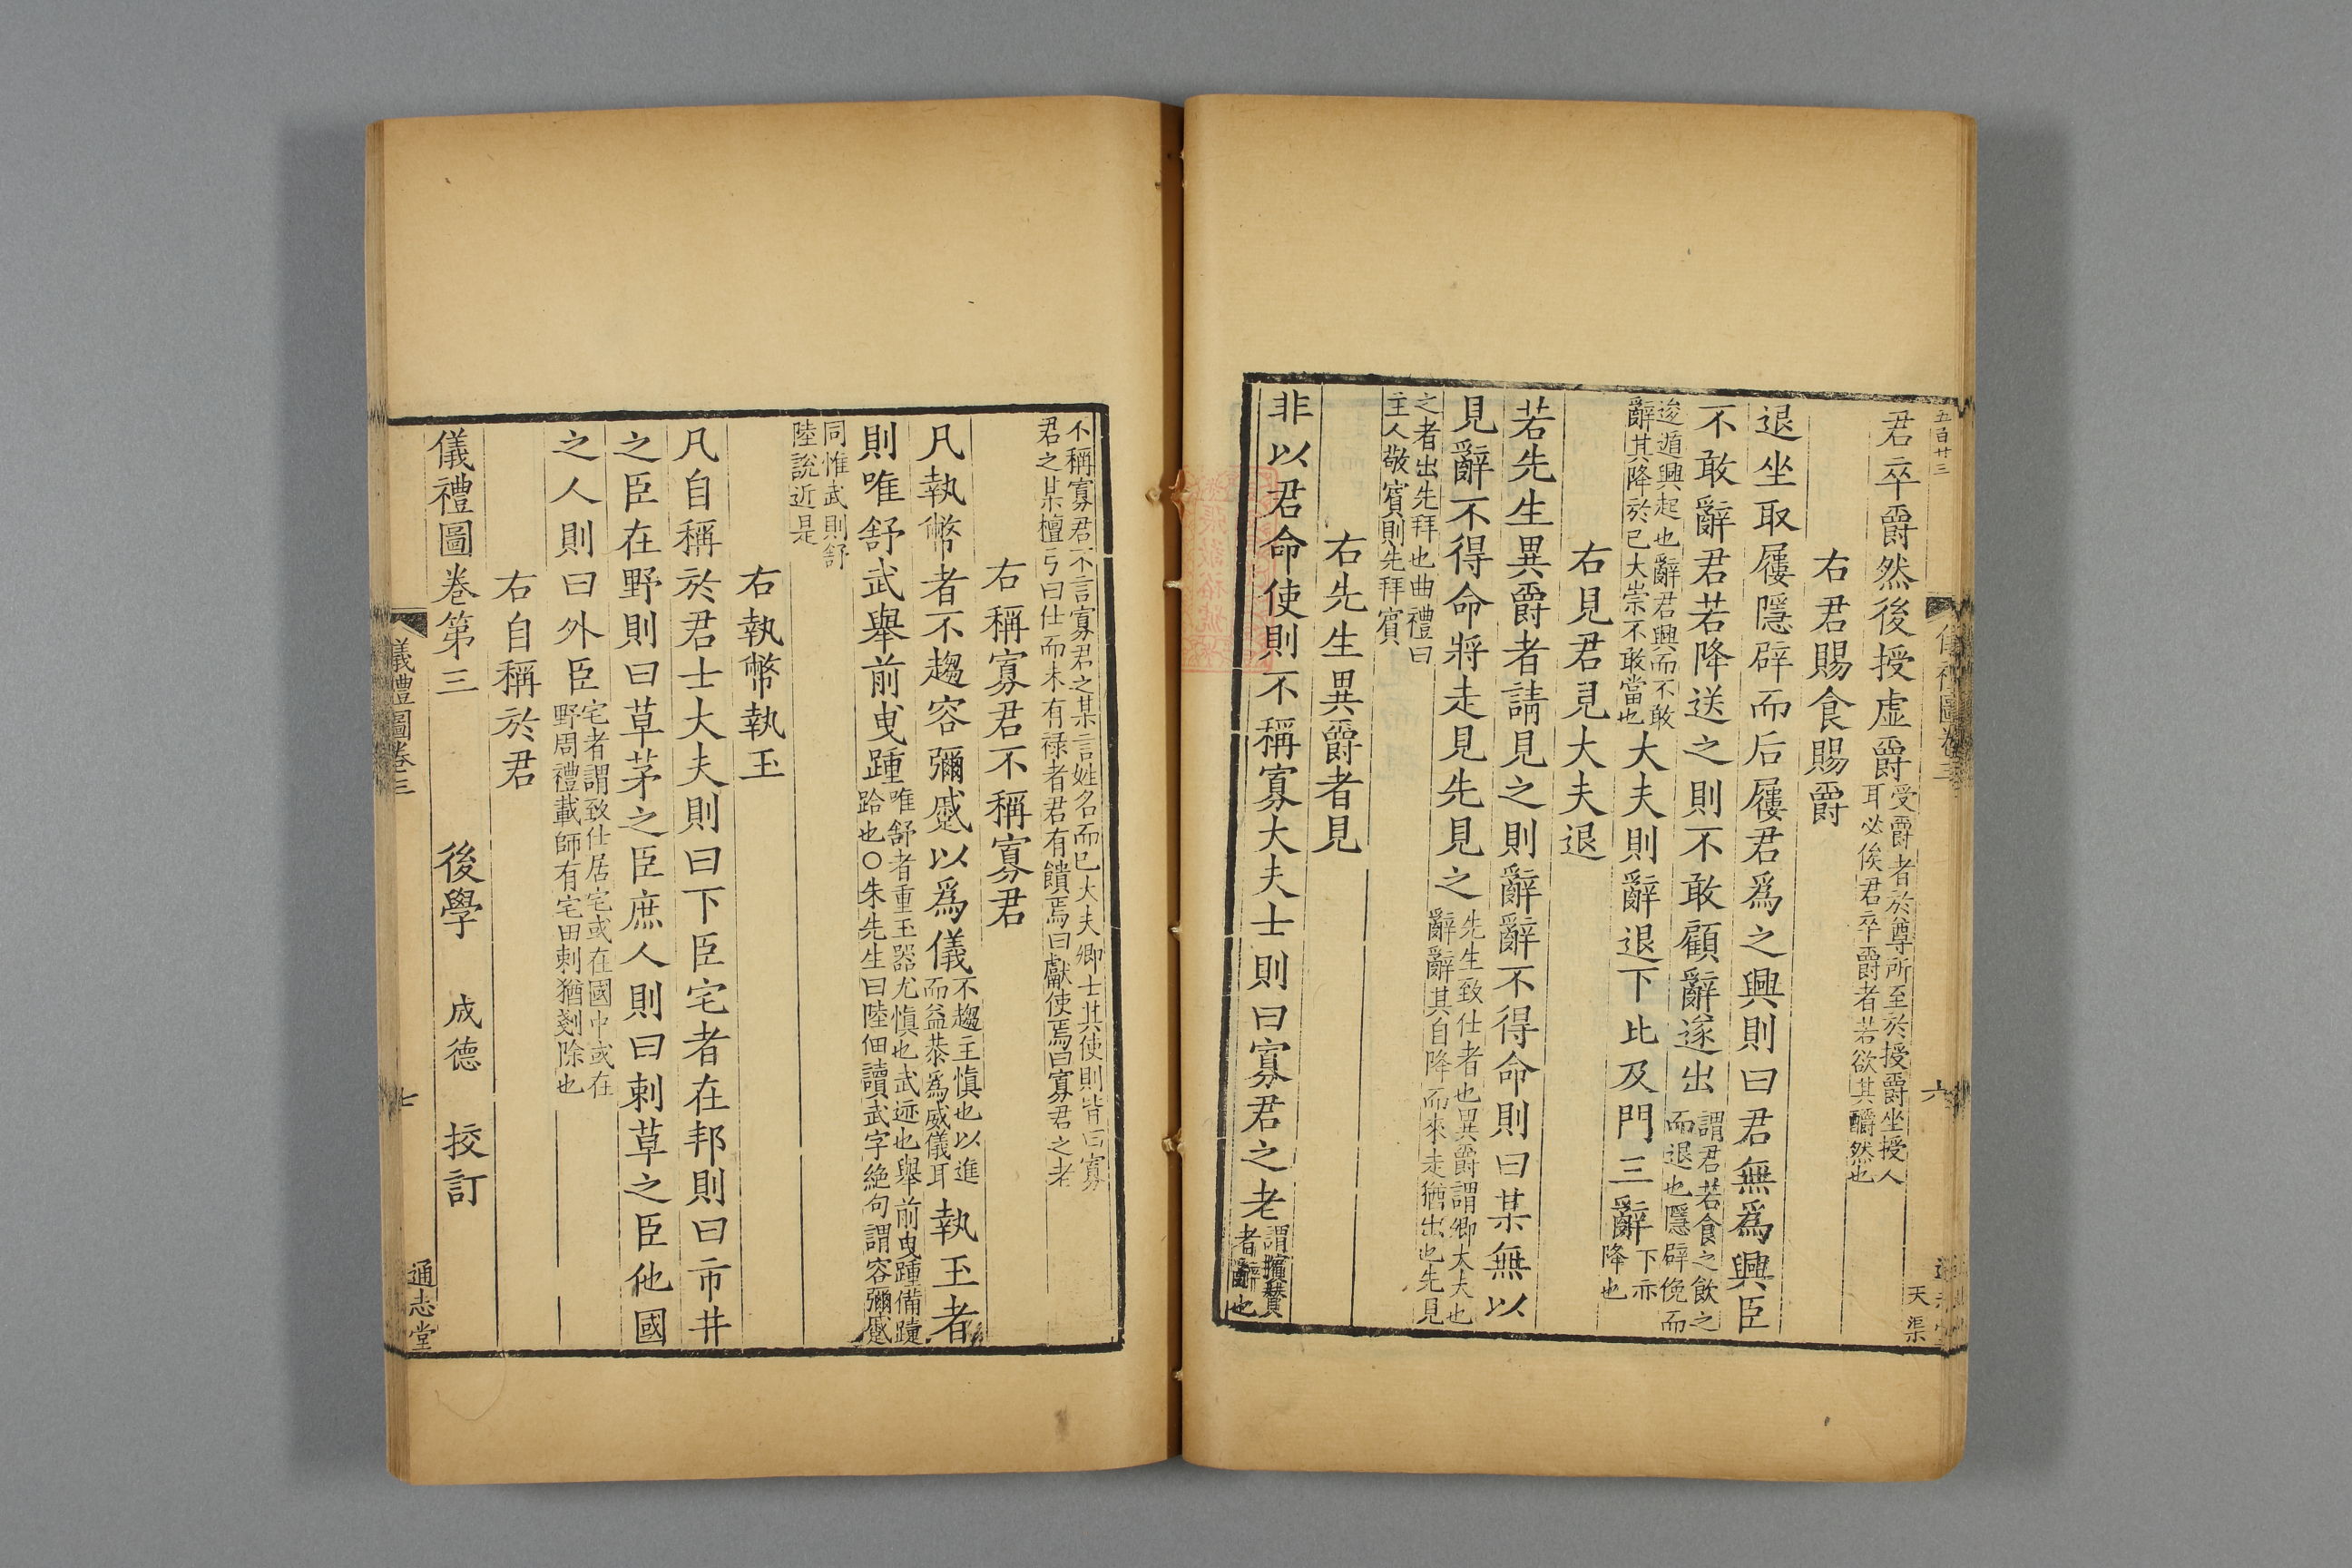 五百廿三
君卒爵然後授虛爵受爵者於尊所至於授爵坐授人耳必俟君卒爵者若欲其釂然也
右君賜食賜爵
退坐取屨隱辟而后屨君爲之興則曰君無爲興臣
不敢辭君若降送之則不敢顧辭遂出謂君若食之飲之而退也隱辟俛而
逡遁興起也辭君興而不敢辭其降於己大崇不敢當也大夫則辭退下比及門三辭下亦降也
右見君見大夫退
若先生異爵者請見之則辭辭不得命則曰某無以
見辭不得命將走見先見之先生致仕者也異爵謂卿大夫也辭辭其自降而來走猶出也先見
之者出先拜也曲禮曰主人敬賓則先拜賓
右先生異爵者見
非以君命使則不稱寡大夫士則曰寡君之老謂擯贊者辭也
儀禮圖卷三
六
天渠
不稱寡君不言寡君之某言姓名而已大夫卿士其使則皆曰寡君之某檀弓曰仕而未有祿者君有饋焉曰獻使焉曰寡君之老
右稱寡君不稱寡君
凡執幣者不趨容彌蹙以爲儀不趨主慎也以進而益恭爲威儀耳執玉者
則唯舒武舉前曳踵唯舒者重玉器尤慎也武迹也舉前曳踵備躓跲也○朱先生曰陸佃讀武字絶句謂容彌蹙
同惟武則舒陸說近是
右執幣執玉
凡自稱於君士大夫則曰下臣宅者在邦則曰市井
之臣在野則曰草茅之臣庶人則曰刺草之臣他國
之人則曰外臣宅者謂致仕居宅或在國中或在野周禮載師有宅田刺猶剗除也
右自稱於君
儀禮圖卷第三
後學 成德 校訂
儀禮圖卷三
七
通志堂